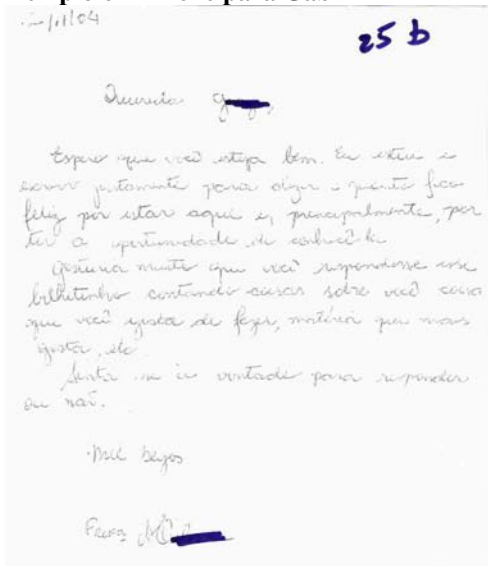 /11/04
25 b
Querida
Espero que você esteja bem. Eu estou e
escrevo justamente para dizer o quanto fico
feliz por estar aqui e, principalmente, por
ter a oportunidade de conhecê-la
Gostaria muito que você respondesse esse
bilhetinho contando coisas sobre você coisa
que você gosta de fazer, matéria que mais
gosta, etc
Sinta-se à vontade para responder
ou não.
Mil beijos